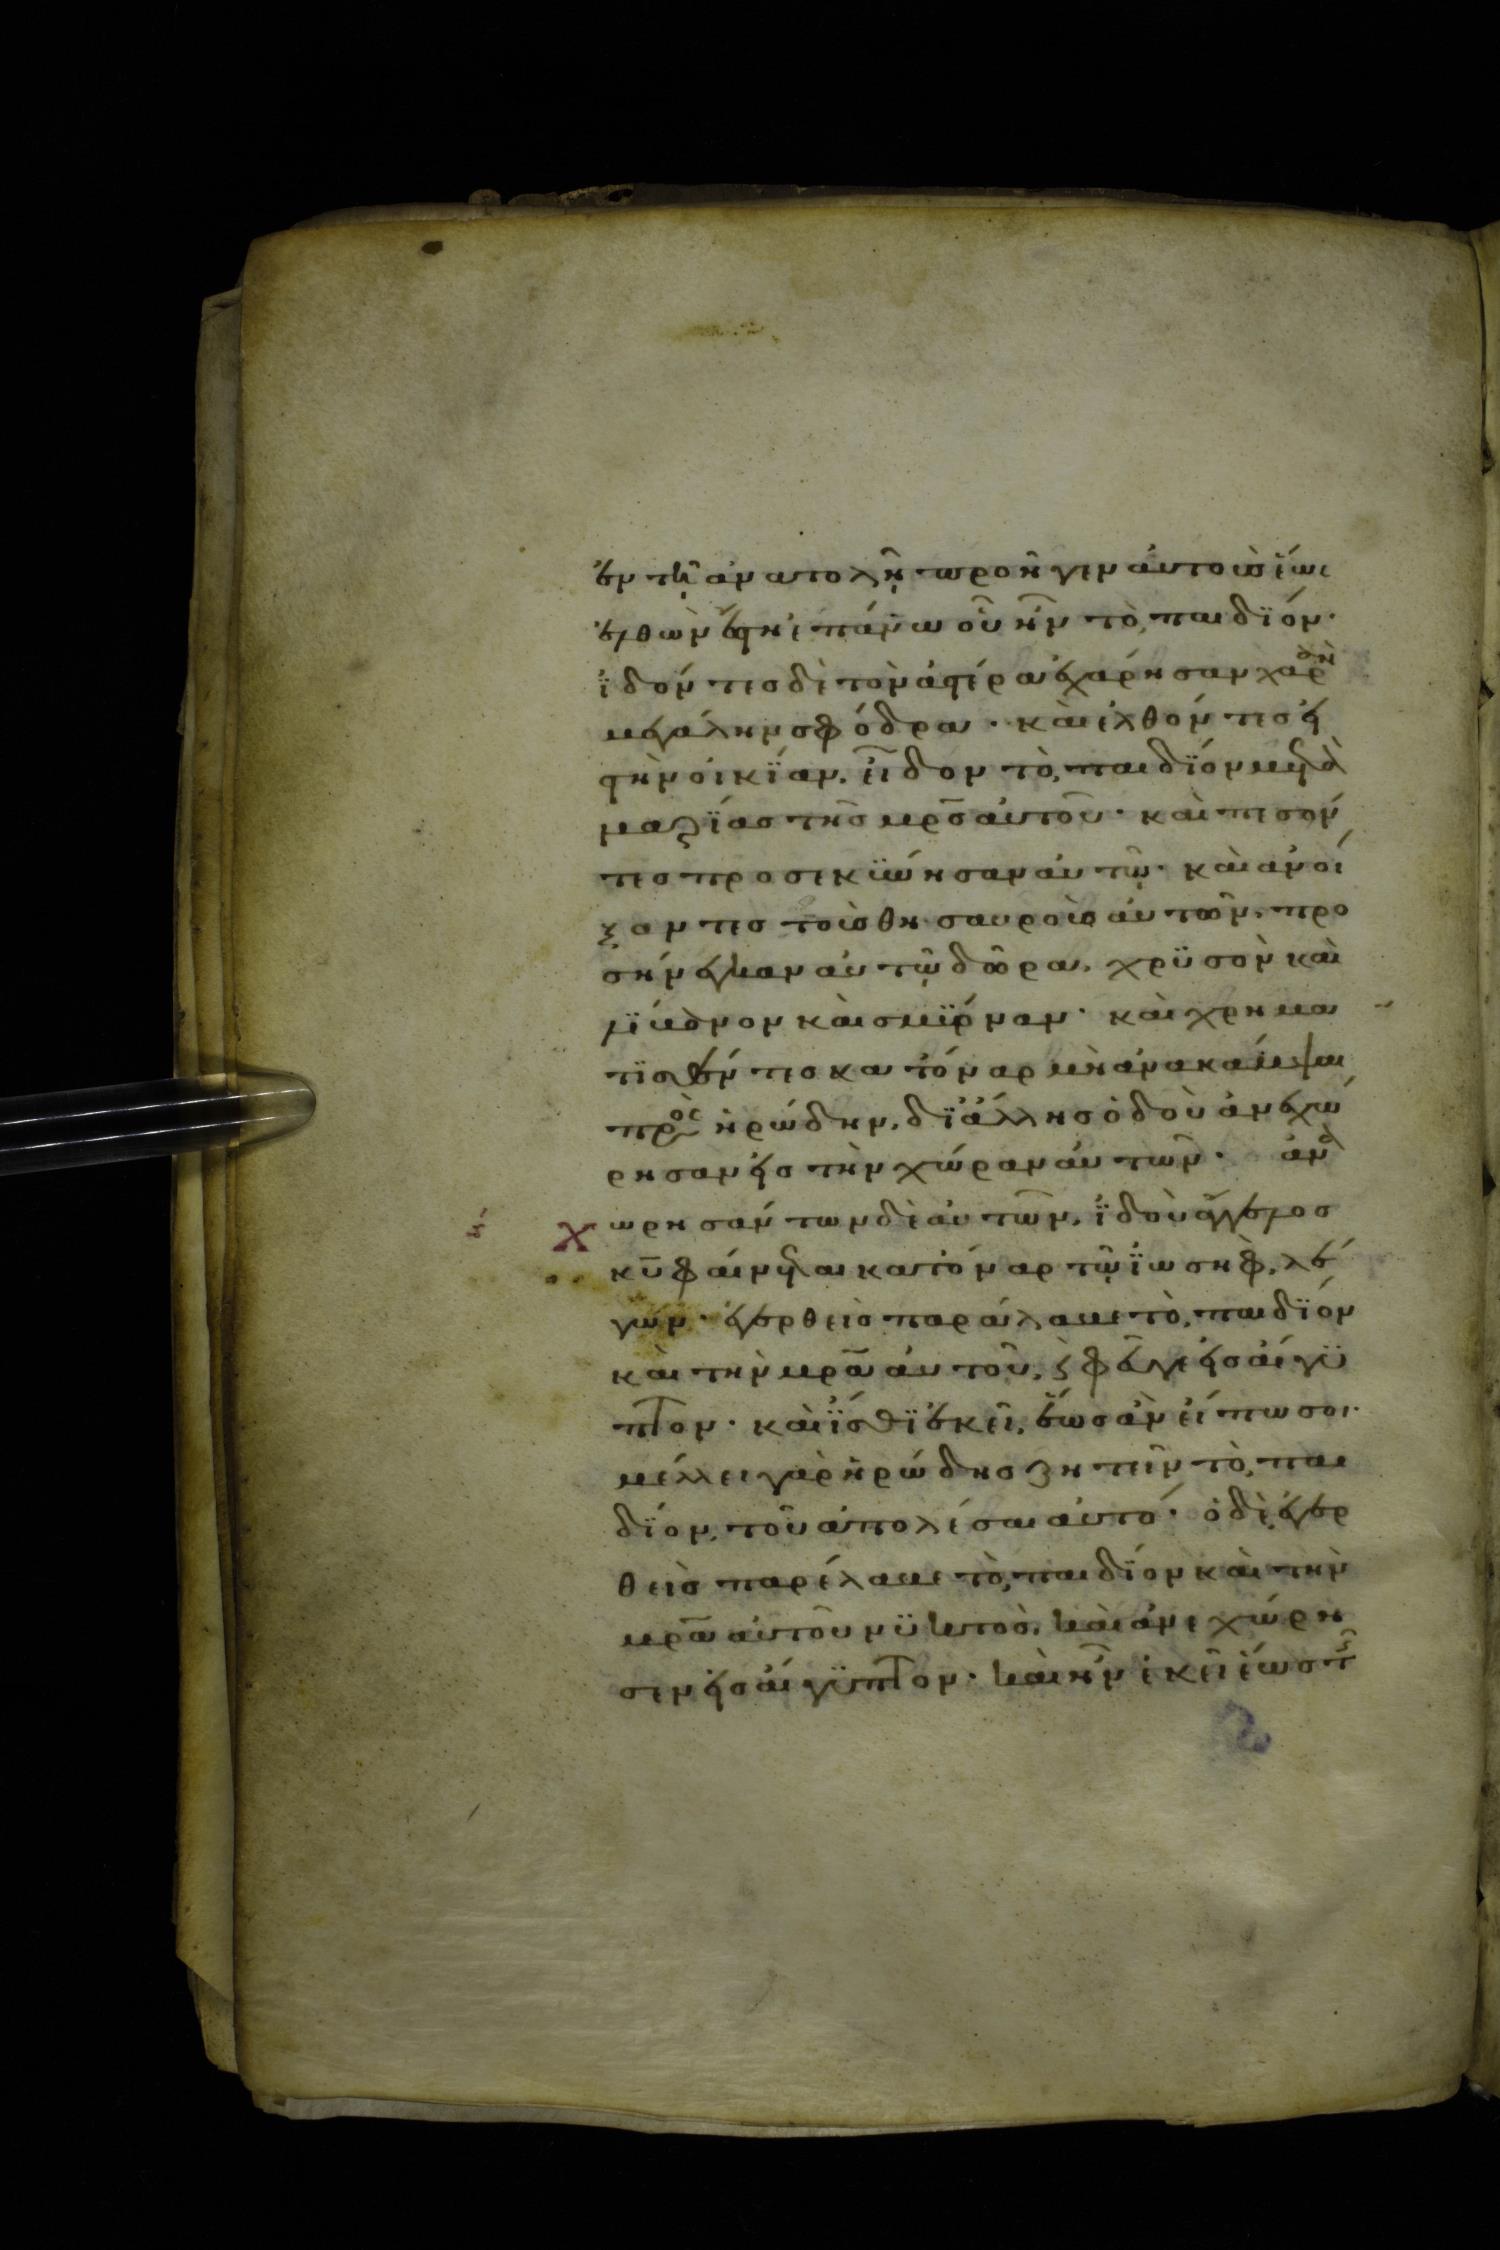 ἐν τῆ ἀνατολῆ προῆγεν ἀυτοὺς ἕως
ἐλθὼν ἔστη ἐπάνω οὗ ἦν τὸ παιδΐον·
ἰδόντες δὲ τὸν ἀστέρα ἐχάρησαν χαρὰν
μεγάλην σφόδρα· καὶ ἐλθόντες εἰ
ς τὴν ὀικΐαν, εἶδον τὸ παιδΐον μετὰ
μαρΐας τῆς μρ̅ς ἀυτοῦ· καὶ πεσόν
τες προσεκϋνησαν ἀυτῷ· καὶ ἀνοί
ξαντες τοὺς θησαυροὺς ἀυτῶν, προ
σήνεγκαν ἀυτῷ δῶρα, χρϋσὸν καὶ
λΐβανον καὶ σμΰρναν· καὶ χρημα
τϊσθέντες κατόναρ μὴ ἀνακάμψαι
πρὸς ἡρώδην, δϊ ἄλλης ὁδοὺ ἀνεχώ
ρησαν εἰς τὴν χώραν ἀυτῶν· ἀνα
χωρησάντων δὲ ἀυτῶν, ἰδοὺ ἄγγελος
κ̅υ φαίνεται κατόναρ τῷ ἰωσὴφ, λέ
γων· ἐγερθεὶς παράλαβε τὸ παιδΐον
καὶ τὴν μρ̅α ἀυτοῦ, ϛ φεῦγε εἰς αἴγϋ
πτον· καὶ ἴσθϊ ἐκεῖ, ἕως ἂν εἴπω σοι·
μέλλει γὰρ ἡρώδης ζητεῖν τὸ παι
δΐον, τοῦ ἀπολέσαι ἀυτό· ὁ δὲ ἐγερ
θεὶς παρέλαβε τὸ παιδΐον καὶ τὴν
μρ̅α ἀυτοῦ νϋκτὸς, καὶ ἀνεχώρη
σεν εἰς αἴγϋπτον· καὶ ἦν ἐκεῖ ἕως τῆς